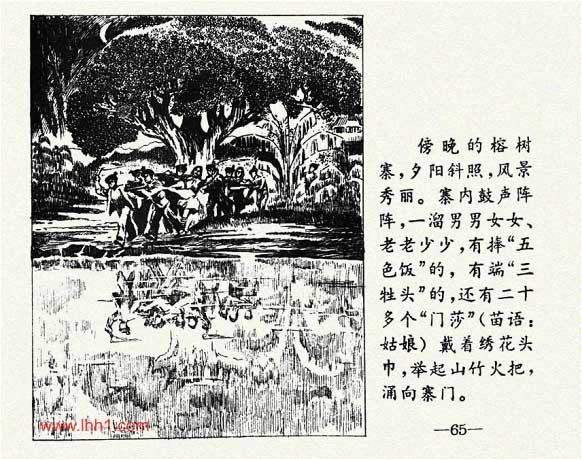 傍晚的榕树
寨,夕阳斜照,风景
秀丽。寨内鼓声阵
阵,一溜男男女女、
老老少少,有捧“五
色饭”的,有端“三
牲头”的,还有二十
多个“门莎”(苗语:
姑娘)戴着绣花头
巾,举起山竹火把,
涌向寨门。
—65—
www.lhh1.com